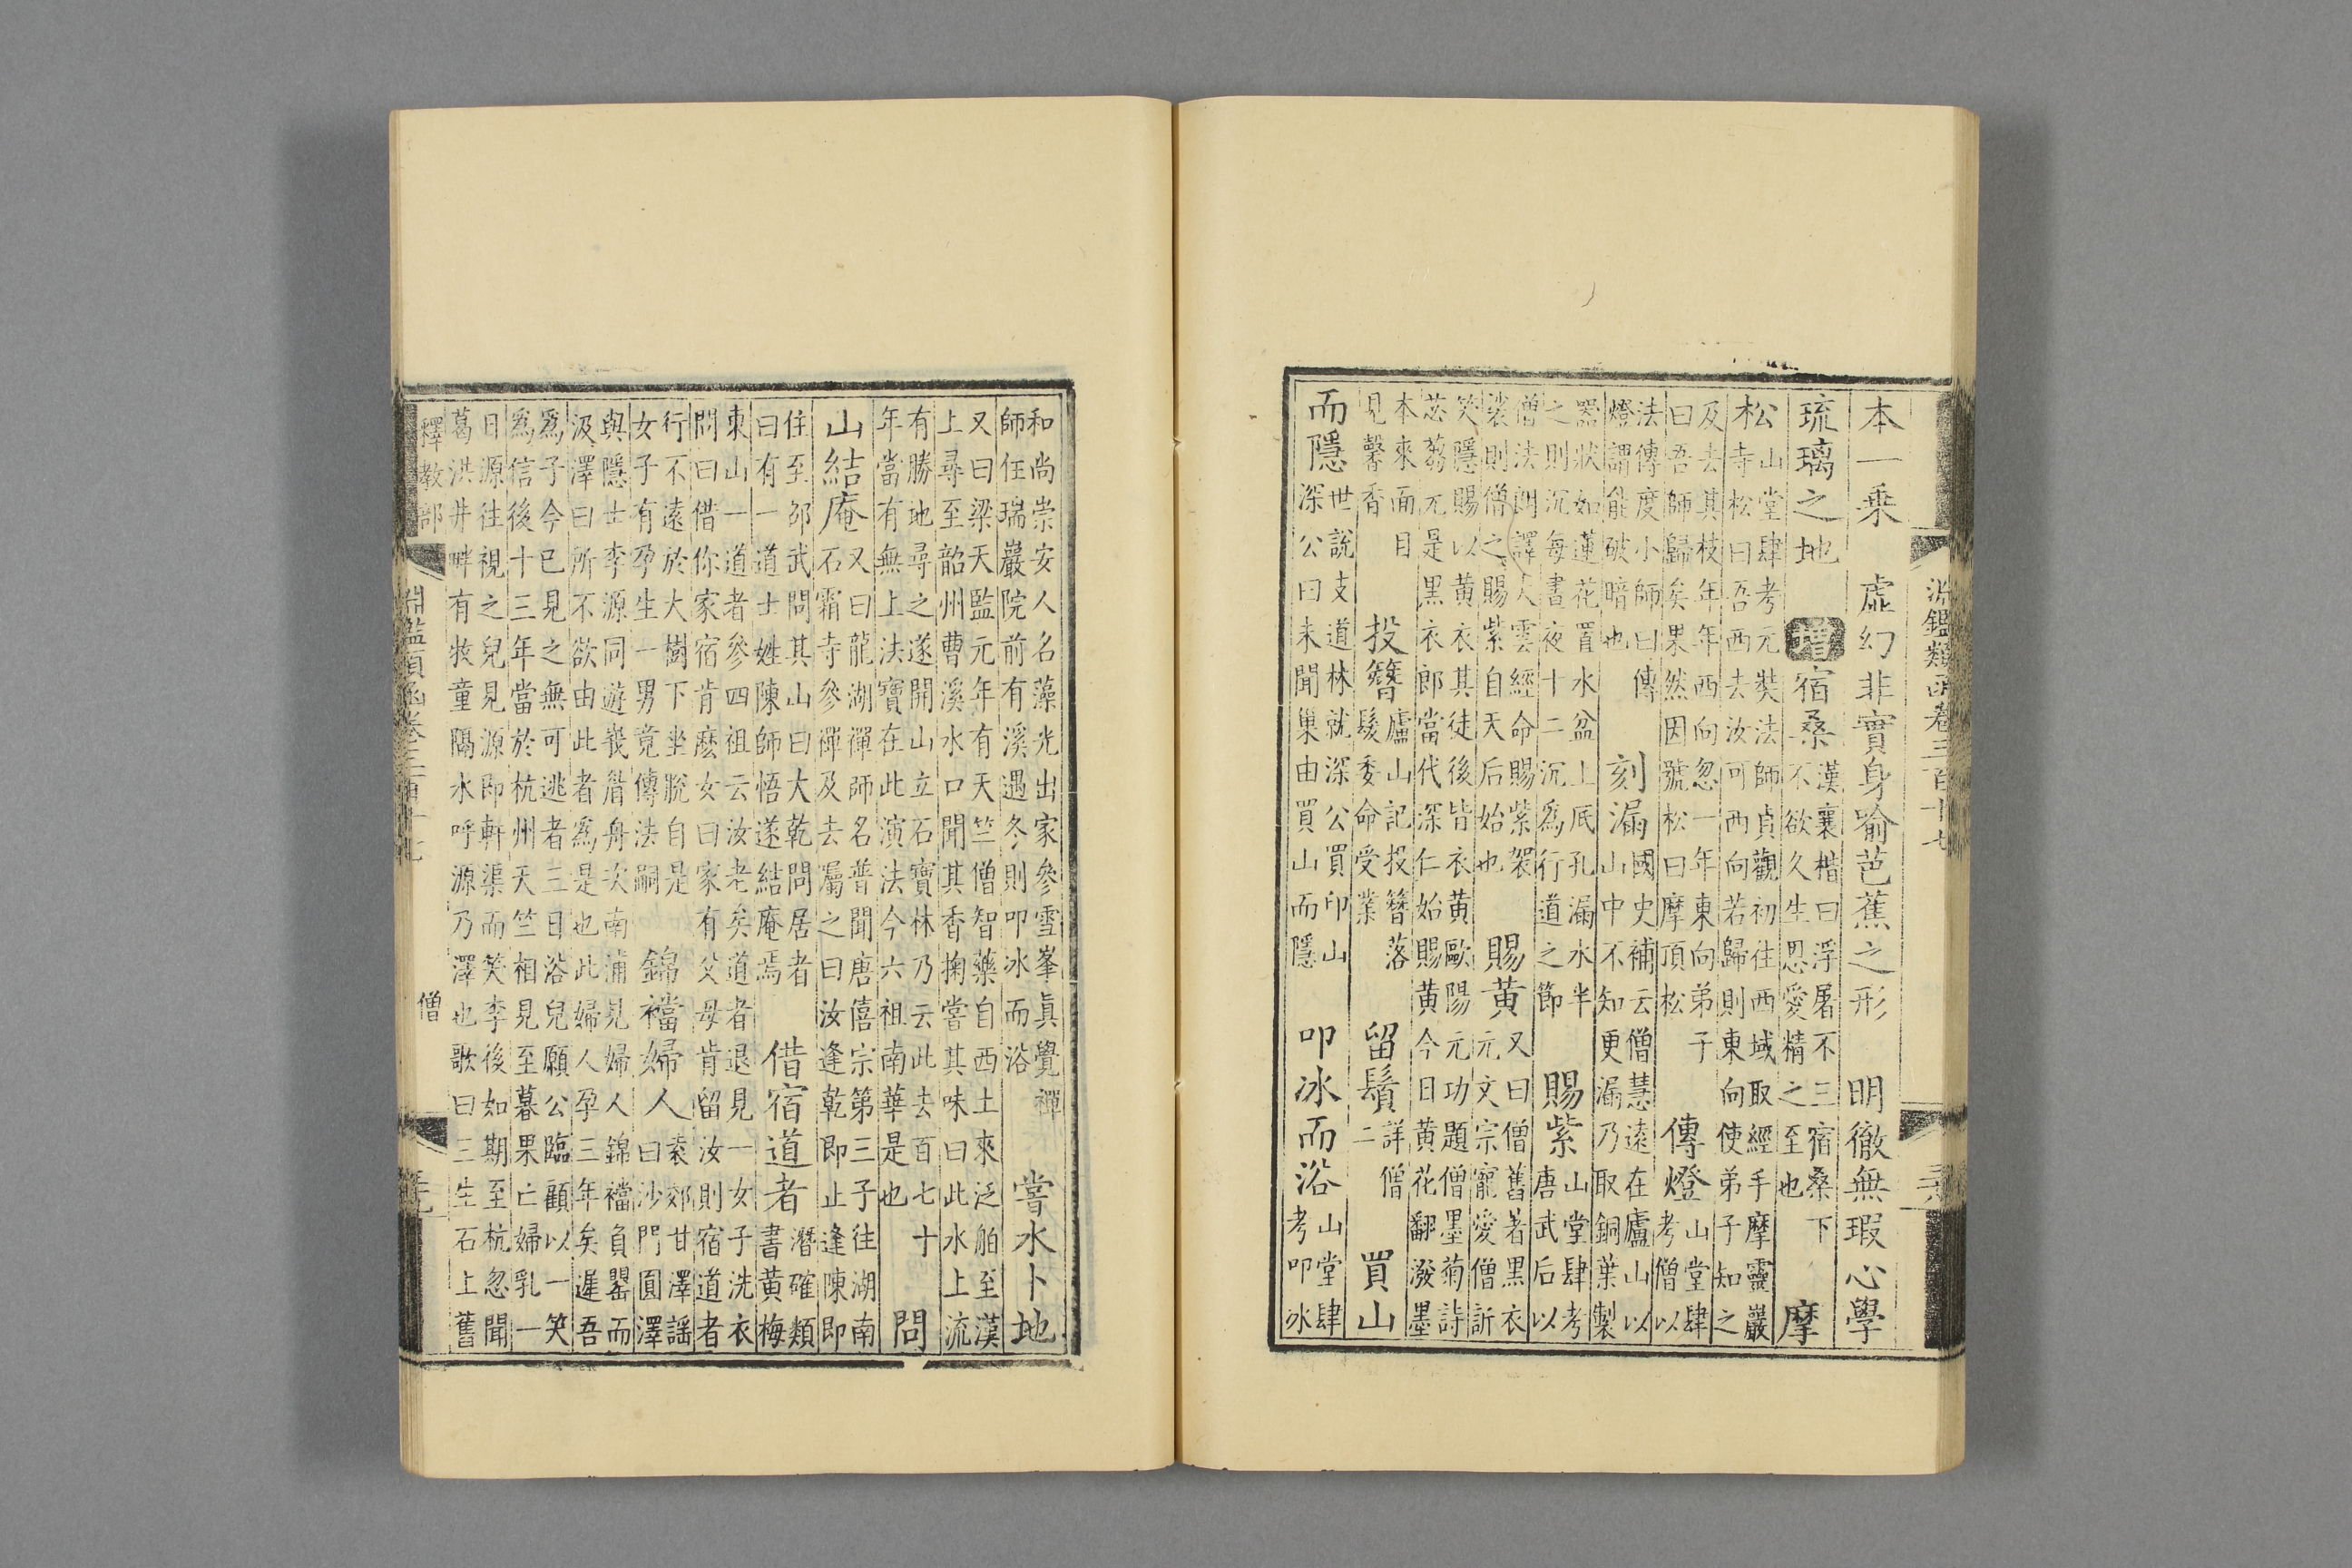 淵鑑類函卷三百十七
本一乘　虛幻非實身喻芭蕉之形　明徹無瑕心學
琉璃之地　增　宿桑
漢襄楷曰浮屠不三宿桑下
不欲久生恩愛精之至也
摩
松
山堂肆考元奘法師貞觀初往西域取經手摩靈巖
寺松曰吾西去汝可西向若歸則東向使弟子知之
及去其枝年年西向忽一年東向弟子
曰吾師歸矣果然因號松曰摩頂松
傳燈
山堂肆
考僧以
法傳度小師曰傳
燈謂能破暗也
刻漏
國史補云僧慧遠在廬山以
山中不知更漏乃取銅葉製
器狀如蓮花置水盆上底孔漏水半
之則沉每晝夜十二沉爲行道之節
賜紫
山堂肆考
唐武后以
僧法朗譯大雲經命賜紫袈
裟則僧之賜紫自天后始也
賜黃
又曰僧舊著黑衣
元文宗寵愛僧訢
笑隱賜以黃衣其徒後皆衣黃歐陽元功題僧墨菊詩
苾蒭元是黑衣郎當代深仁始賜黃今日黃花翻潑墨
本來面目
見馨香
投簪
廬山記投簪落
髮委命受業
留鬚
詳僧
二
買山
而隱
世說支道林就深公買印山
深公曰未聞巢由買山而隱
叩冰而浴
山堂肆
考叩冰
和尚崇安人名藻光出家參雪峯眞覺禪
師住瑞巖院前有溪遇冬則叩冰而浴
嘗水卜地
又曰梁天監元年有天竺僧智藥自西土來泛舶至漢
上尋至韶州曹溪水口聞其香掬嘗其味曰此水上流
有勝地尋之遂開山立石寶林乃云此去百七十
年當有無上法寶在此演法今六祖南華是也
問
山結庵
又曰龍湖禪師名普聞唐僖宗第三子往湖南
石霜寺參禪及去屬之曰汝逢乾即止逢陳即
住至邵武問其山曰大乾問居者
曰有一道士姓陳師悟遂結庵焉
借宿道者
潛確類
書黃梅
東山一道者參四祖云汝老矣道者退見一女子洗衣
問曰借你家宿肯麽女曰家有父母肯留汝則宿道者
行不遠於大樹下坐脫自是
女子有孕生一男竟傳法嗣
錦襠婦人
袁郊甘澤謠
曰沙門圓澤
與隱士李源同遊峩眉舟次南浦見婦人錦襠負罌而
汲澤曰所不欲由此者爲是也此婦人孕三年矣遲吾
爲子今已見之無可逃者三日浴兒願公臨顧以一笑
爲信後十三年當於杭州天竺相見至暮果亡婦乳一
日源往視之兒見源即軒渠而笑李後如期至杭忽聞
葛洪井畔有牧童隔水呼源乃澤也歌曰三生石上舊
釋教部　僧
淵鑑類函卷三百十七